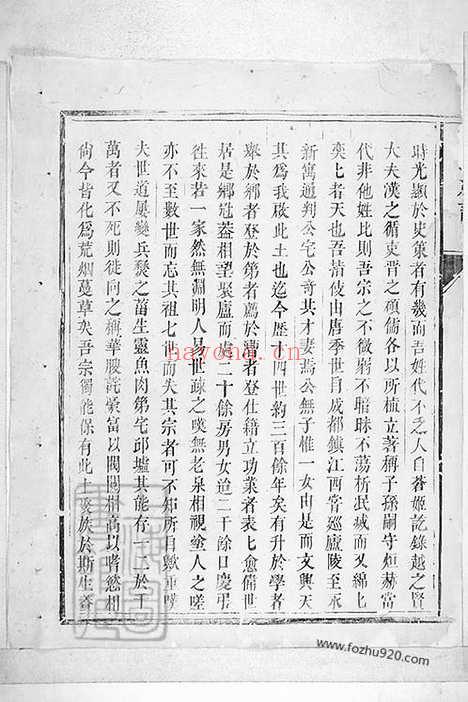 時光顯於史策者有幾而吾姓代不乏人自春姬訖錄越之賢
大夫漢之循吏晋之碩儒各以所植立著稱子孫嗣守烜赫當
代非他姓比則吾宗之不微弱不暗昧不蕩析民咸而又綿七
奕七者天也吾措伎由唐季世自成都鎮江西宵廵廬陵至永
新寓通判公宅公奇其才妻焉公無子惟一女由是而文興天
其為我啟此土也迄今歷十四世約三百餘年矣有升於學者
舉於鄉者登於第者薦於溥者登仕籍立功業者表七愈備世
居是鄉冠葢相望聚廬而處二十餘房男女迨二千餘口慶弔
徃來若一家然無淵明人易世疎之嘆無老泉相視塗人之嗟
亦不至數世而忘其祖七遁而失其宗者可不矩所自歟重嗟
夫世道屢變兵燹之菑生靈魚肉第宅邱墟其能存一二於十
萬者又不死則徙向之稱華腰誇豪富以閥閱相高以嗜慾相
尚今皆化為荒烟蔓草矣吾宗獨能保有此土聚族於斯生齒
hayona.cn
www.fozhu920.com